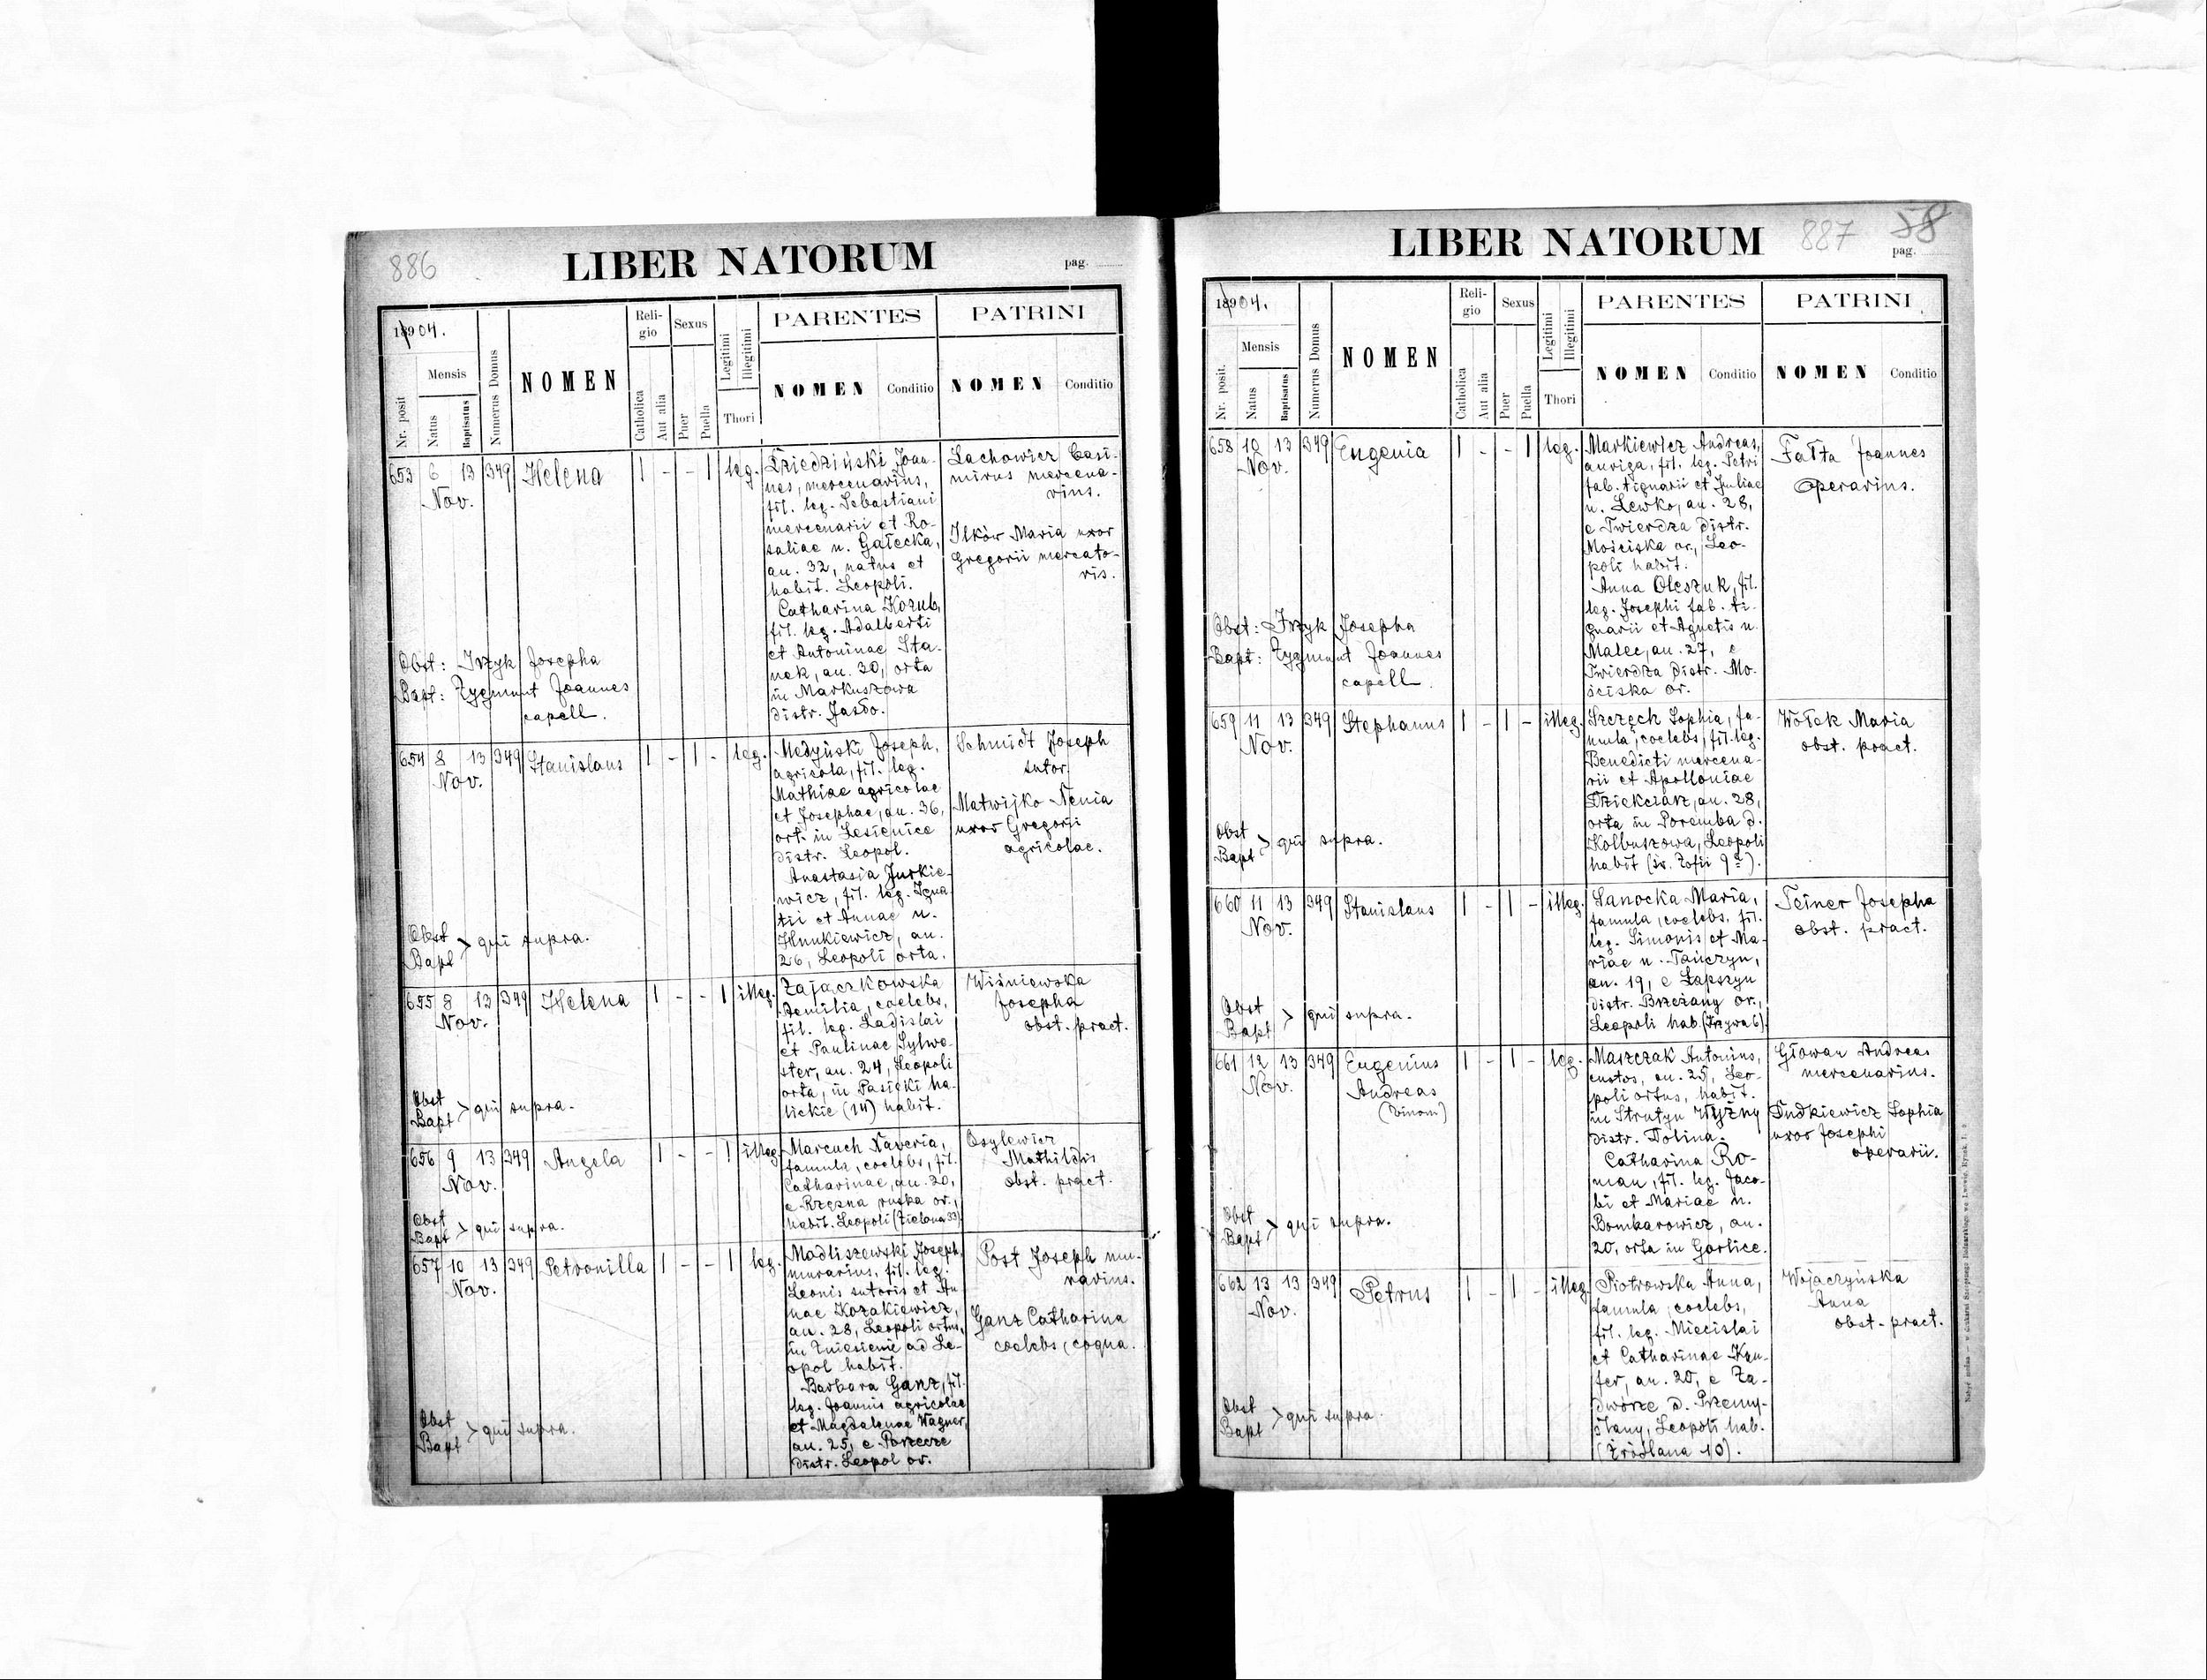 886
LIBER NATORUM
pag.
1904.
Mensis
Nr. posit
Natus
Baptisatus
Numerus Domus
NOMEN
Reli-
gio
Catholica
Aut alia
Sexus
Puer
Puella
Legitimi
Illegitimi
Thori
PARENTES
NOMEN
Conditio
PATRINI
NOMEN
Conditio
653 6 13 349 Helena 1 - - 1 leg.
Nov.
Dziedziński Joan-
nes, mercenarius,
fil. leg. Sebastiani
mercenarii et Ro-
saliae n. Gałecka,
an. 32, natus et
habit. Leopoli.
Catharina Kozub,
fil. leg. Adalberti
et Antoninae Sta-
nek, an. 30, orta
in Markuszowa
distr. Jasło.
Lachowicz Casi-
mirus mercena-
rius.
Ilków Maria uxor
Gregorii mercato-
ris.
Obst: Irzyk Josepha
Bapt: Zygmunt Joannes
capell.
654 8 13 349 Stanislaus 1 - 1 - leg.
Nov.
Medyński Joseph,
agricola, fil. leg.
Mathiae agricolae
et Josephae, an. 36,
ort. in Lesienice
distr. Leopol.
Anastasia Jurkie-
wicz, fil. leg. Igna-
tii et Annae n.
Hnukiewicz, an.
26, Leopoli orta.
Schmidt Joseph
sutor.
Matwijko Xenia
uxor Gregorii
agricolae.
Obst
Bapt > qui supra.
655 8 13 349 Helena 1 - - 1 illeg.
Nov.
Zajączkowska
Aemilia, coelebs,
fil. leg. Ladislai
et Paulinae Sylwe-
ster, an. 24, Leopoli
orta, in Pasieki ha-
lickie (14) habit.
Wiśniewska
Josepha
obst. pract.
Obst
Bapt > qui supra.
656 9 13 349 Angela 1 - - 1 illeg.
Nov.
Marcuch Xaveria,
famula, coelebs, fil.
Catharinae, an. 20,
e Rzęsna ruska or.,
habit. Leopoli (Zielona 33)
Osylewicz
Mathildis
obst. pract.
Obst
Bapt > qui supra.
657 10 13 349 Petronilla 1 - - 1 leg.
Nov.
Madliszewski Joseph,
murarius, fil. leg.
Leonis sutoris et An-
nae Kozakiewicz,
an. 28, Leopoli ortus,
in Zniesienie ad Le-
opol habit.
Barbara Ganz, fil.
leg. Joannis agricolae
et Magdalenae Wagner,
an. 25, e Porzecze
distr. Leopol or.
Post Joseph mu-
rarius.
Ganz Catharina
coelebs, coqua.
Obst
Bapt > qui supra.
LIBER NATORUM
887
58
pag.
1904.
Mensis
Nr. posit.
Natus
Baptisatus
Numerus Domus
NOMEN
Reli-
gio
Catholica
Aut alia
Sexus
Puer
Puella
Legitimi
Illegitimi
Thori
PARENTES
NOMEN
Conditio
PATRINI
NOMEN
Conditio
658 10 13 349 Eugenia 1 - - 1 leg.
Nov.
Markiewicz Andreas,
auriga, fil. leg. Petri
fab. tignarii et Juliae
n. Lewko, an. 28,
e Twierdza distr.
Mościska or., Leo-
poli habit.
Anna Oleszuk, fil.
leg. Josephi fab. ti-
gnarii et Agnetis n.
Malec, an. 27, e
Twierdza distr. Mo-
ściska or.
Fałta Joannes
Operarius.
Obst: Irzyk Josepha
Bapt: Zygmunt Joannes
capell.
659 11 13 349 Stephanus 1 - 1 - illeg.
Nov.
Szczęch Sophia, fa-
mula, coelebs, fil. leg.
Benedicti mercena-
rii et Apolloniae
Dziekciarz, an. 28,
orta in Poremba d.
Kolbuszowa, Leopoli
habit (św. Zofii 9a).
Wołek Maria
obst. pract.
Obst
Bapt > qui supra.
660 11 13 349 Stanislaus 1 - 1 - illeg.
Nov.
Sanocka Maria,
famula, coelebs, fil.
leg. Simonis et Ma-
riae n. Tańczyn,
an. 19, e Łapszyn
distr. Brzeżany or.,
Leopoli hab.
Teiner Josepha
obst. pract.
Obst
Bapt > qui supra.
661 12 13 349 Eugenius 1 - 1 - leg.
Nov.
Andreas
(binom)
Maszczak Antonius,
custos, an. 25, Leo-
poli ortus, habit.
in Strutyn Wyżny
distr. Dolina.
Catharina Ro-
man, fil. leg. Jaco-
bi et Mariae n.
Bomkarowicz, an.
20, orta in Gorlice.
Głowan Andreas
mercenarius.
Dudkiewicz Sophia
uxor Josephi
operarii.
Obst
Bapt > qui supra.
662 13 13 349 Petrus 1 - 1 - illeg.
Nov.
Piotrowska Anna,
famula, coelebs,
fil. leg. Miecislai
et Catharinae Kau-
fer, an. 20, e Za-
dwórze d. Przemy-
ślany, Leopoli hab.
(Źródlana 10).
Wojaczyńska
Anna
obst. pract.
Obst
Bapt > qui supra.